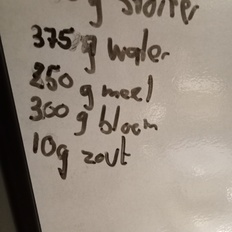 g starter
375 g water
250 g meel
300 g bloem
10g zout